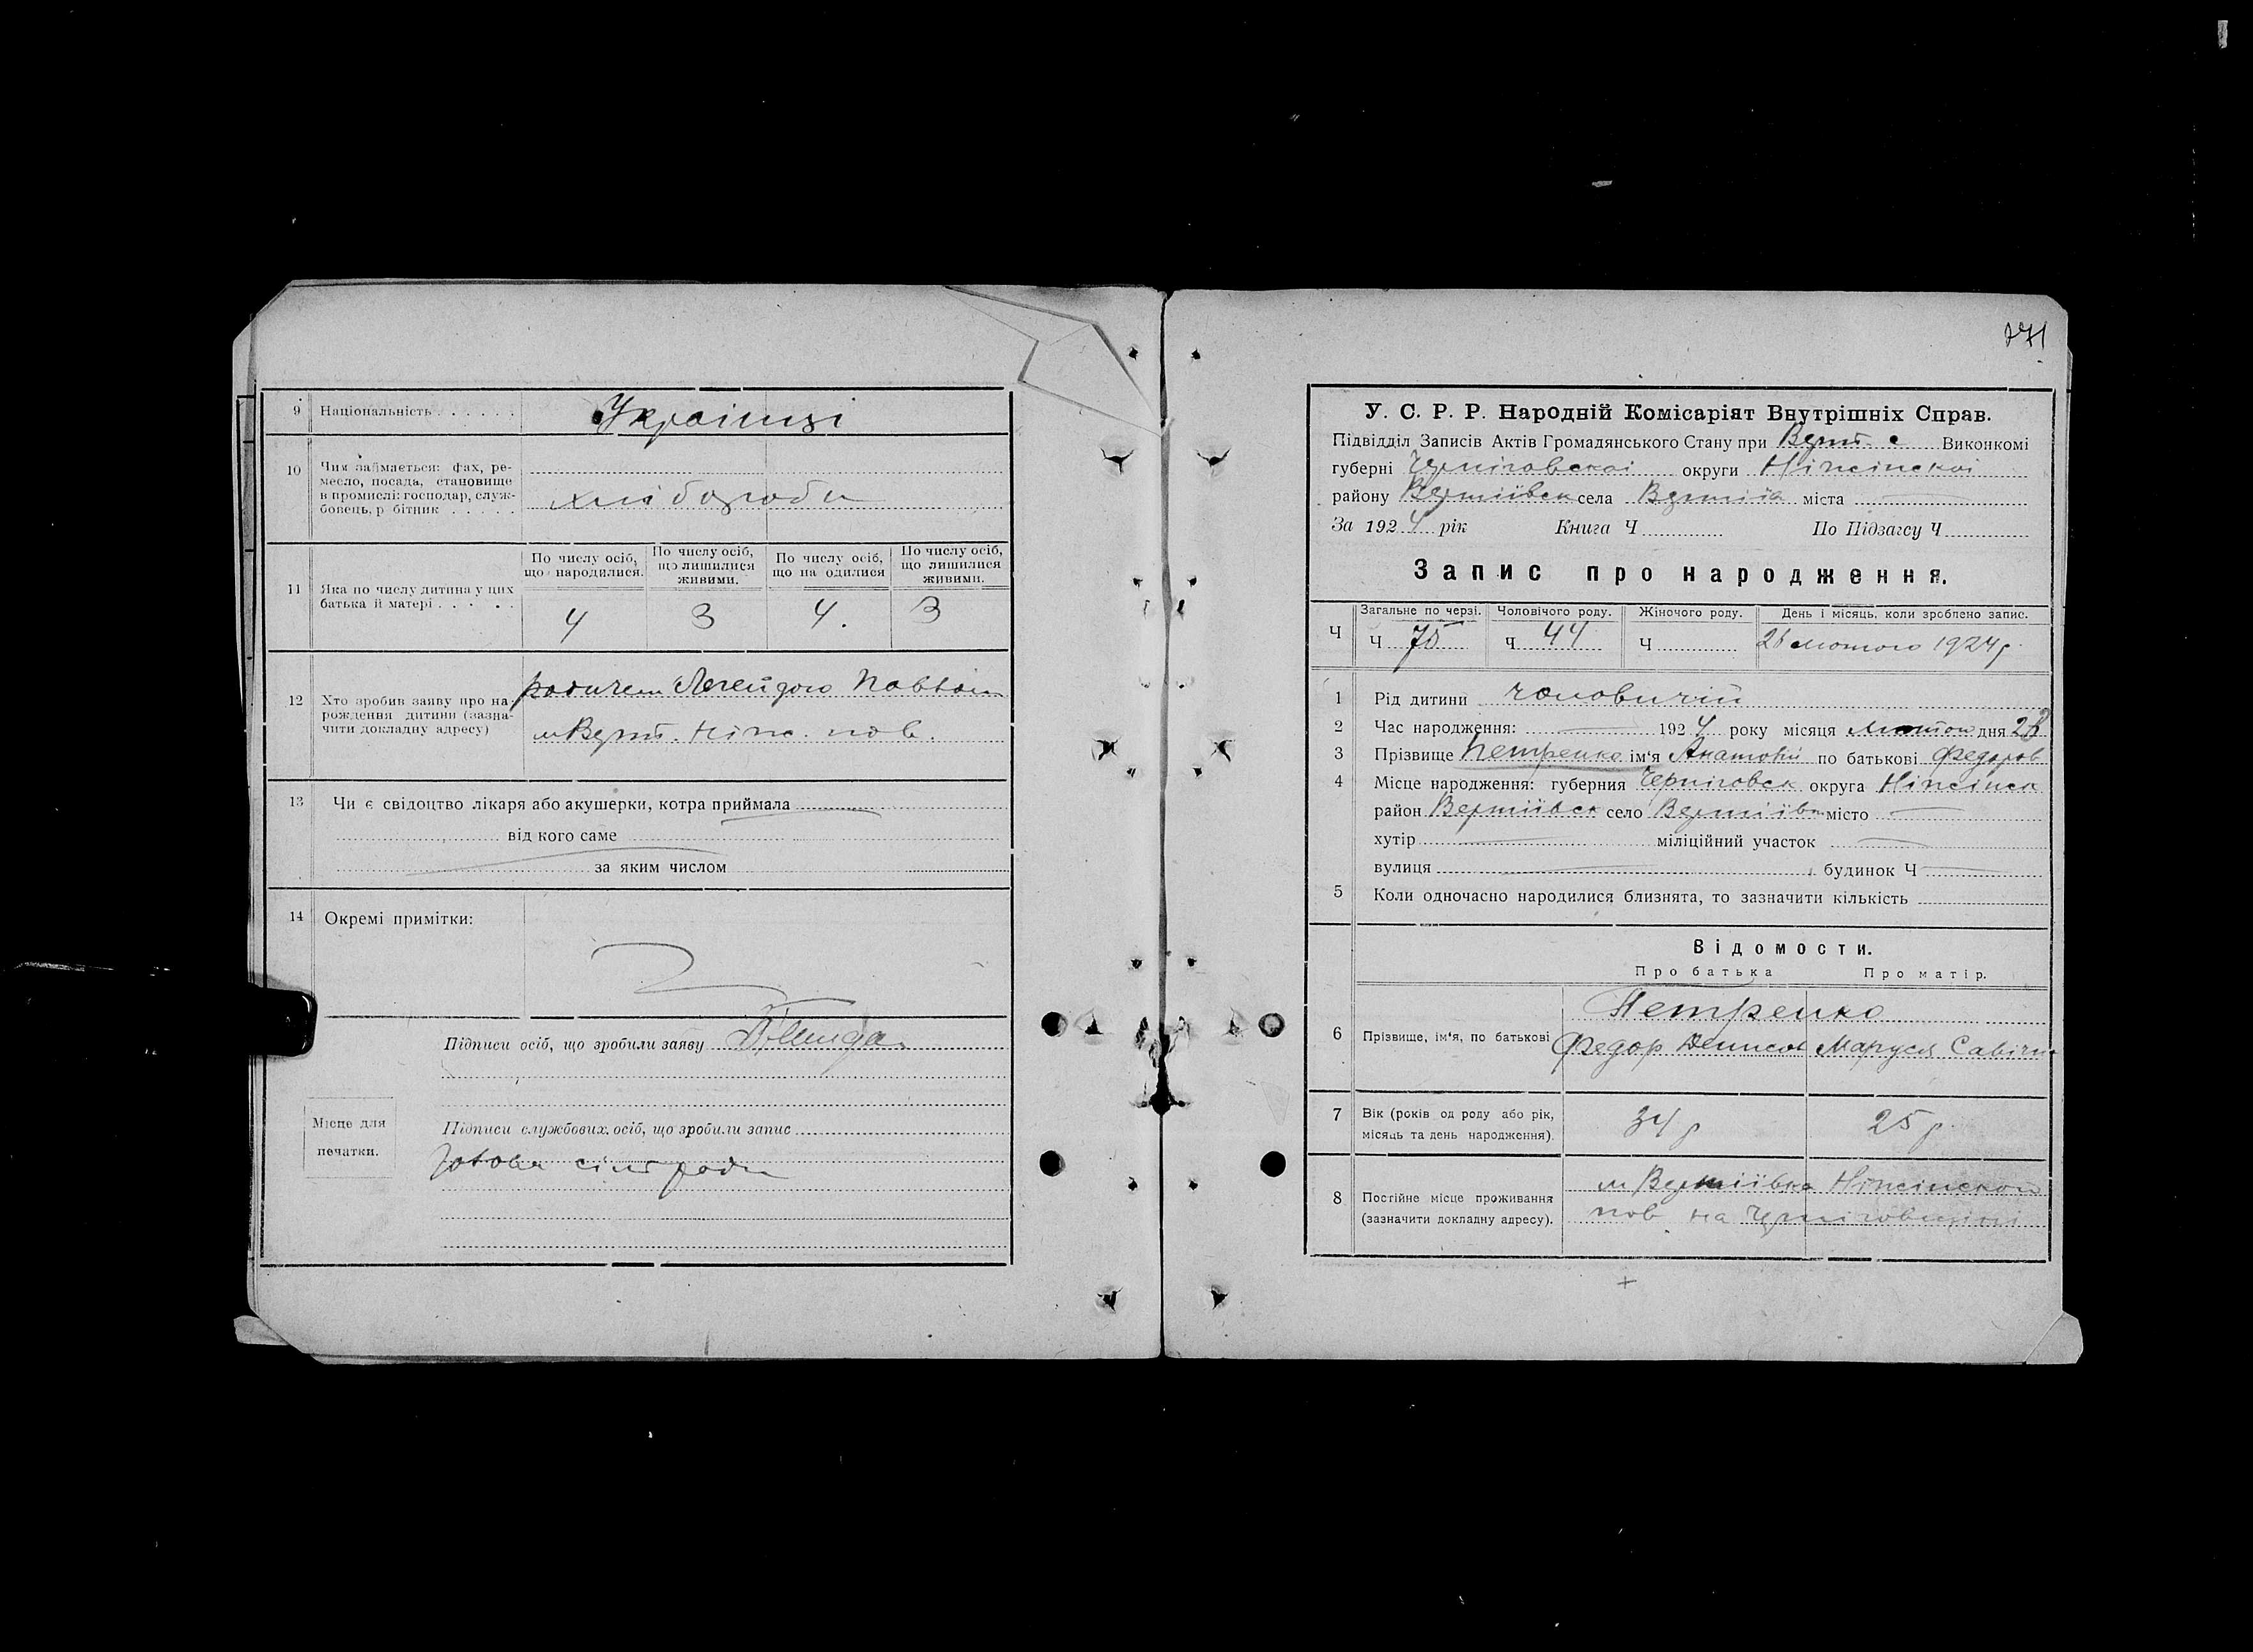 9 Національність . . . . . . Українці
10 Чим займається: фах, ре-
месло, посада, становище
в промислі: господар, служ-
бовець, р бітник . . . . . хлібороби
11 Яка по числу дитина у цих
батька й матері . . . . .
По числу осіб, що народилися. По числу осіб, що лишилися живими. По числу осіб, що на одилися По числу осіб, що лишилися живими.
4 3 4. 3
12 Хто зробив заяву про на-
рождення дитини (зазна-
чити докладну адресу)
родичем Легейдою Павлом
м Верт. Ніж. пов.
13 Чи є свідоцтво лікаря або акушерки, котра приймала
від кого саме
за яким числом
14 Окремі примітки:
Підписи осіб, що зробили заяву
Місце для
печатки.
Підписи службових осіб, що зробили запис
Голова сіл ради
У. С. Р. Р. Народній Комісаріят Внутрішніх Справ.
Підвідділ Записів Актів Громадянського Стану при Верт. с Виконкомі
губерні Черніговскоі округи Ніжінскоі
району Вертіївск села Вертіївка міста
За 1924 рік Книга Ч По Підзагсу Ч
Запис про народження.
Загальне по черзі. Чоловічого роду. Жіночого роду. День і місяць, коли зроблено запис.
Ч Ч 75 Ч 44 Ч лютого 1924 р.
1 Рід дитини чоловичій
2 Час народження: 1924 року місяця лютого дня
3 Прізвище Петренко ім'я Анатолій по батькові Федоров
4 Місце народження: губерния Черніговск округа Ніжінск
район Вертіївск село Вертіівка місто
хутір міліційний участок
вулиця будинок Ч
5 Коли одночасно народилися близнята, то зазначити кількість
Відомости.
Про батька Про матір.
6 Прізвище, ім'я, по батькові
Петренко
Федор Денисов Маруся Савічна
7 Вік (років од роду або рік,
місяць та день народження).
34 р 25 р.
8 Постійне місце проживання
(зазначити докладну адресу).
м Вертіівка Ніжінской
пов на Чернiговщині